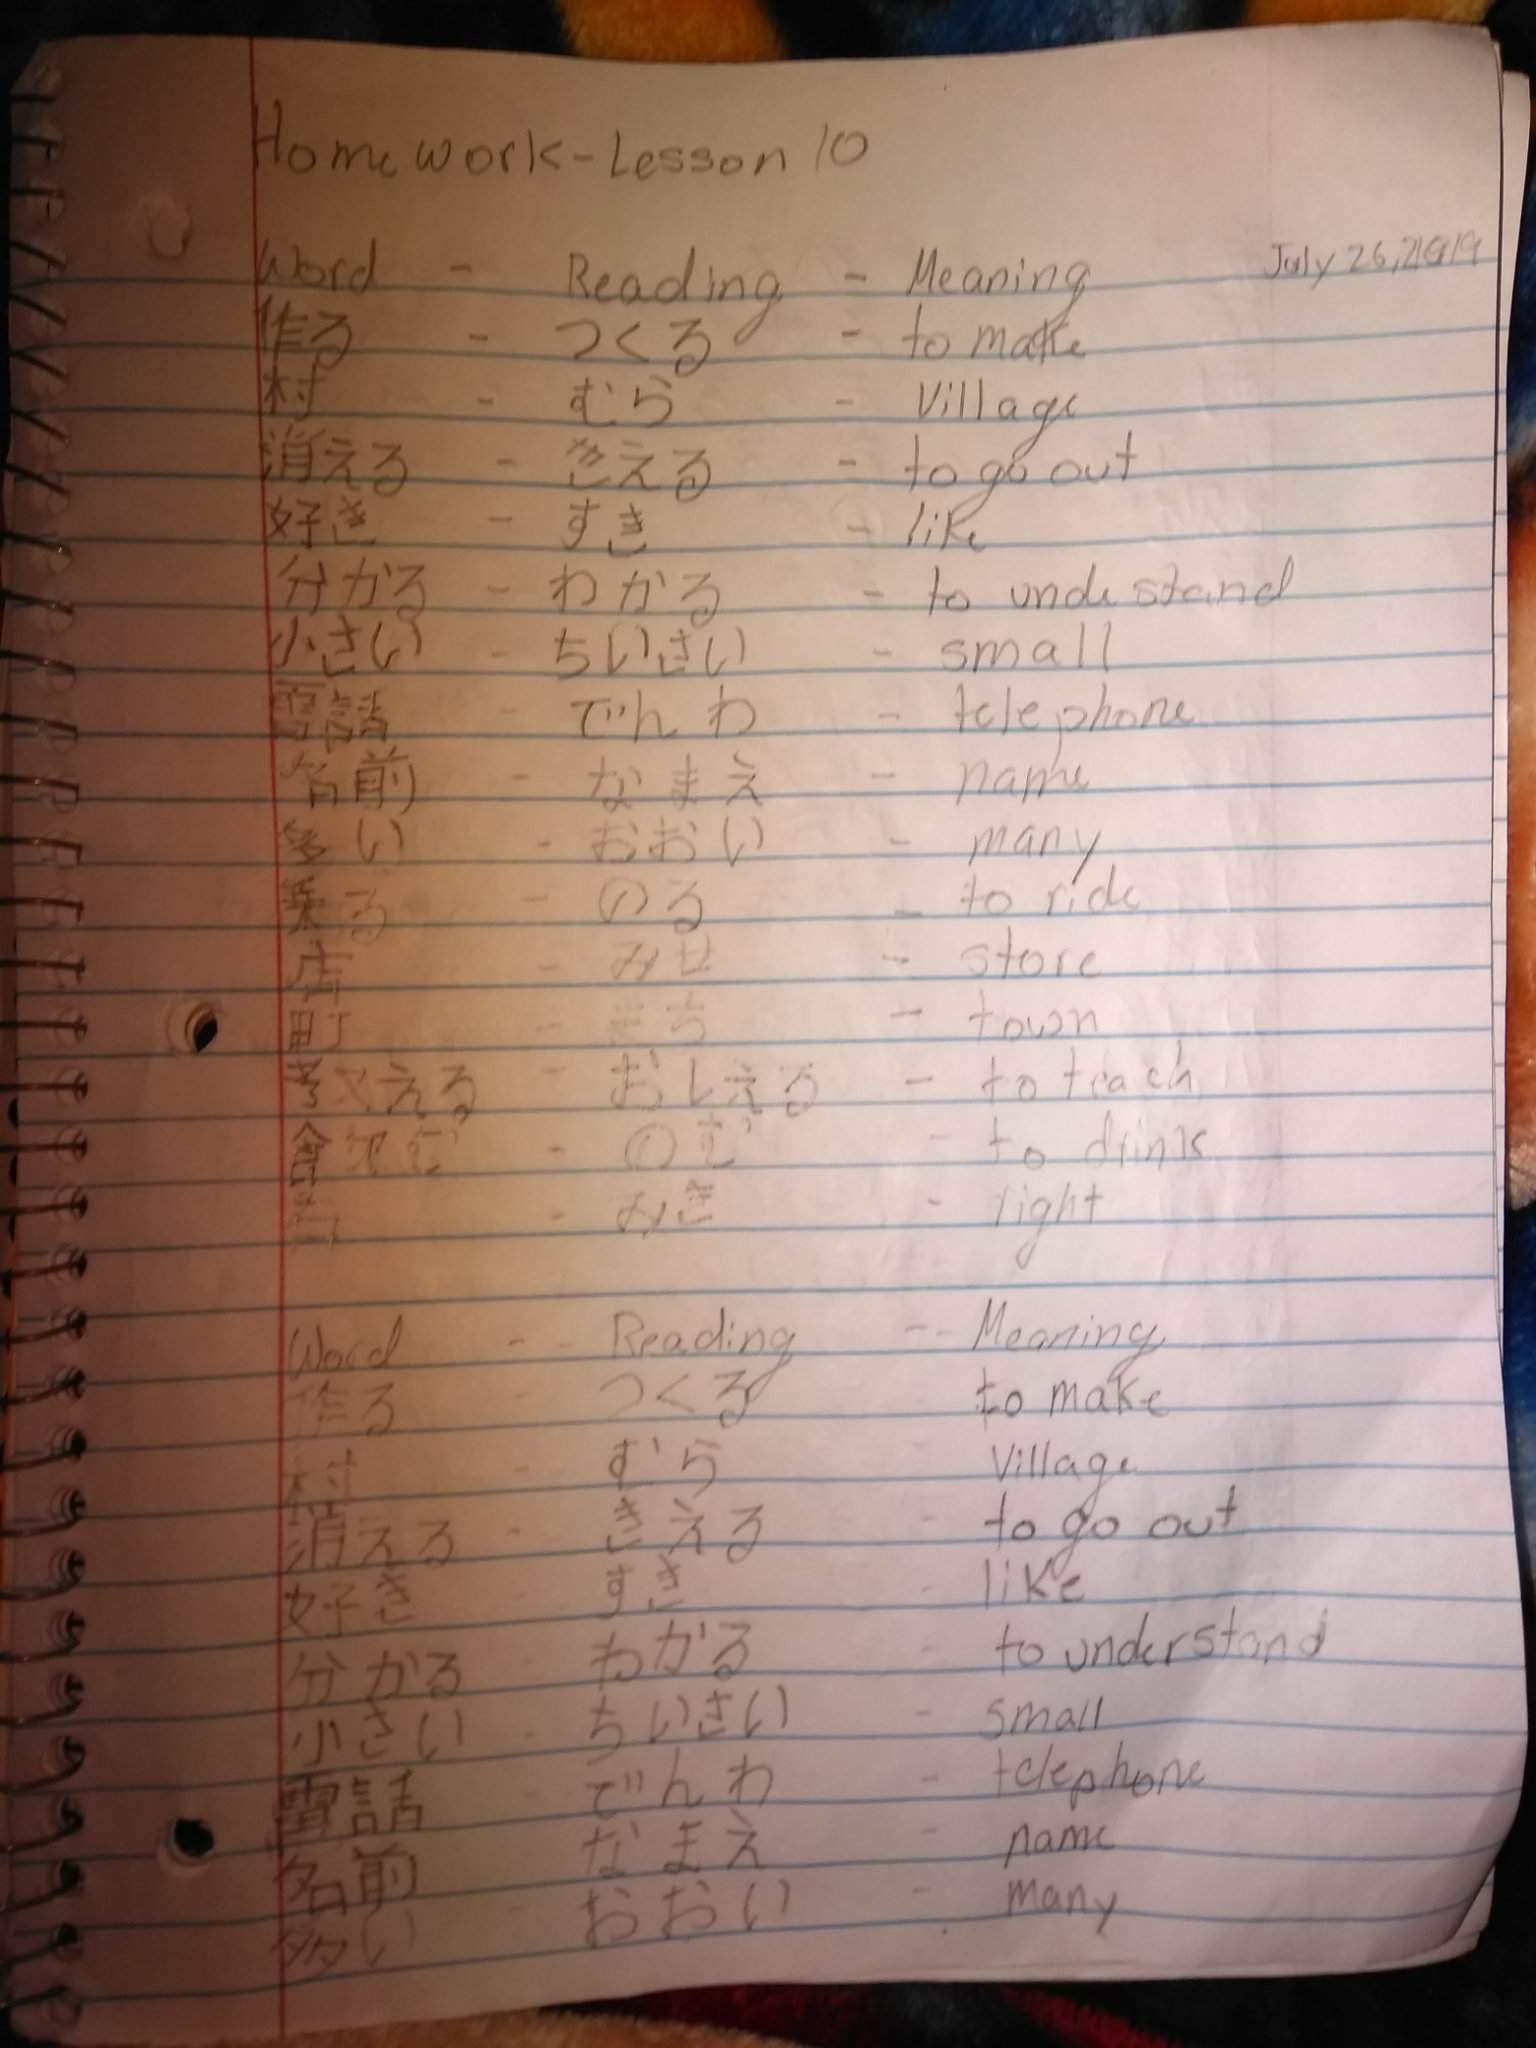 Homework-Lesson 10
Word - Reading - Meaning July 26, 2019
作る - つくる - to make
村 - むら - Village
消える - きえる - to go out
好き - すき - like
分かる - わかる - to undestand
小さい - ちいさい - small
電話 - でんわ - telephone
名前 - なまえ - name
多い - おおい - many
乗る - のる - to ride
店 - みせ - store
町 - まち - town
教える - おしえる - to teach
飲む - のむ - to drink
右 - みぎ - right
Word - Reading - Meaning
作る - つくる to make
村 - むら - Village
消える - きえる - to go out
好き - すき - like
分かる - わかる - to understand
小さい - ちいさい - small
電話 - でんわ - telephone
名前 - なまえ - name
多い - おおい - many